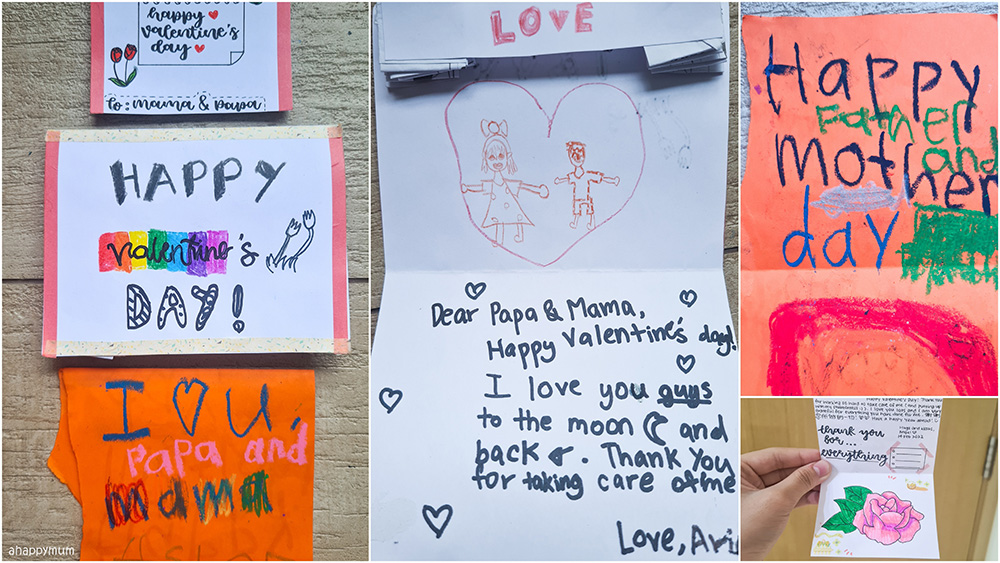 happy
valentine's
day
to: mama & papa
HAPPY
valentine's
DAY!
I ♡ U,
Papa and
mama
ahappymum
LOVE
Dear Papa & Mama,
Happy Valentine's day!
I love you guys
to the moon and
back. Thank You
for taking care of me
Love,
Happy
Father
and
mother
day
thank you
for...
everything